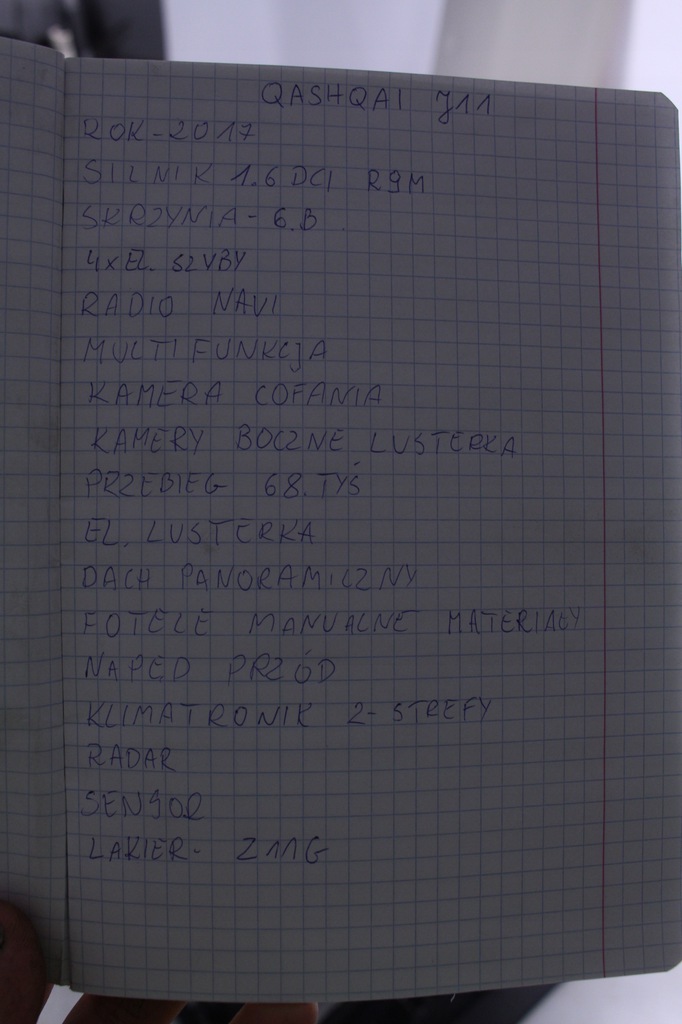 QASHQAI J11
ROK - 2017
SILNIK 1.6 DCI R9M
SKRZYNIA - 6.B
4x EL. SZYBY
RADIO NAVI
MULTI FUNKCJA
KAMERA COFANIA
KAMERY BOCZNE LUSTERKA
PRZEBIEG 68. TYŚ
EL. LUSTERKA
DACH PANORAMICZNY
FOTELE MANUALNE MATERIAŁY
NAPED PRZÓD
KLIMATRONIK 2-STREFY
RADAR
SENSOR
LAKIER - Z11G